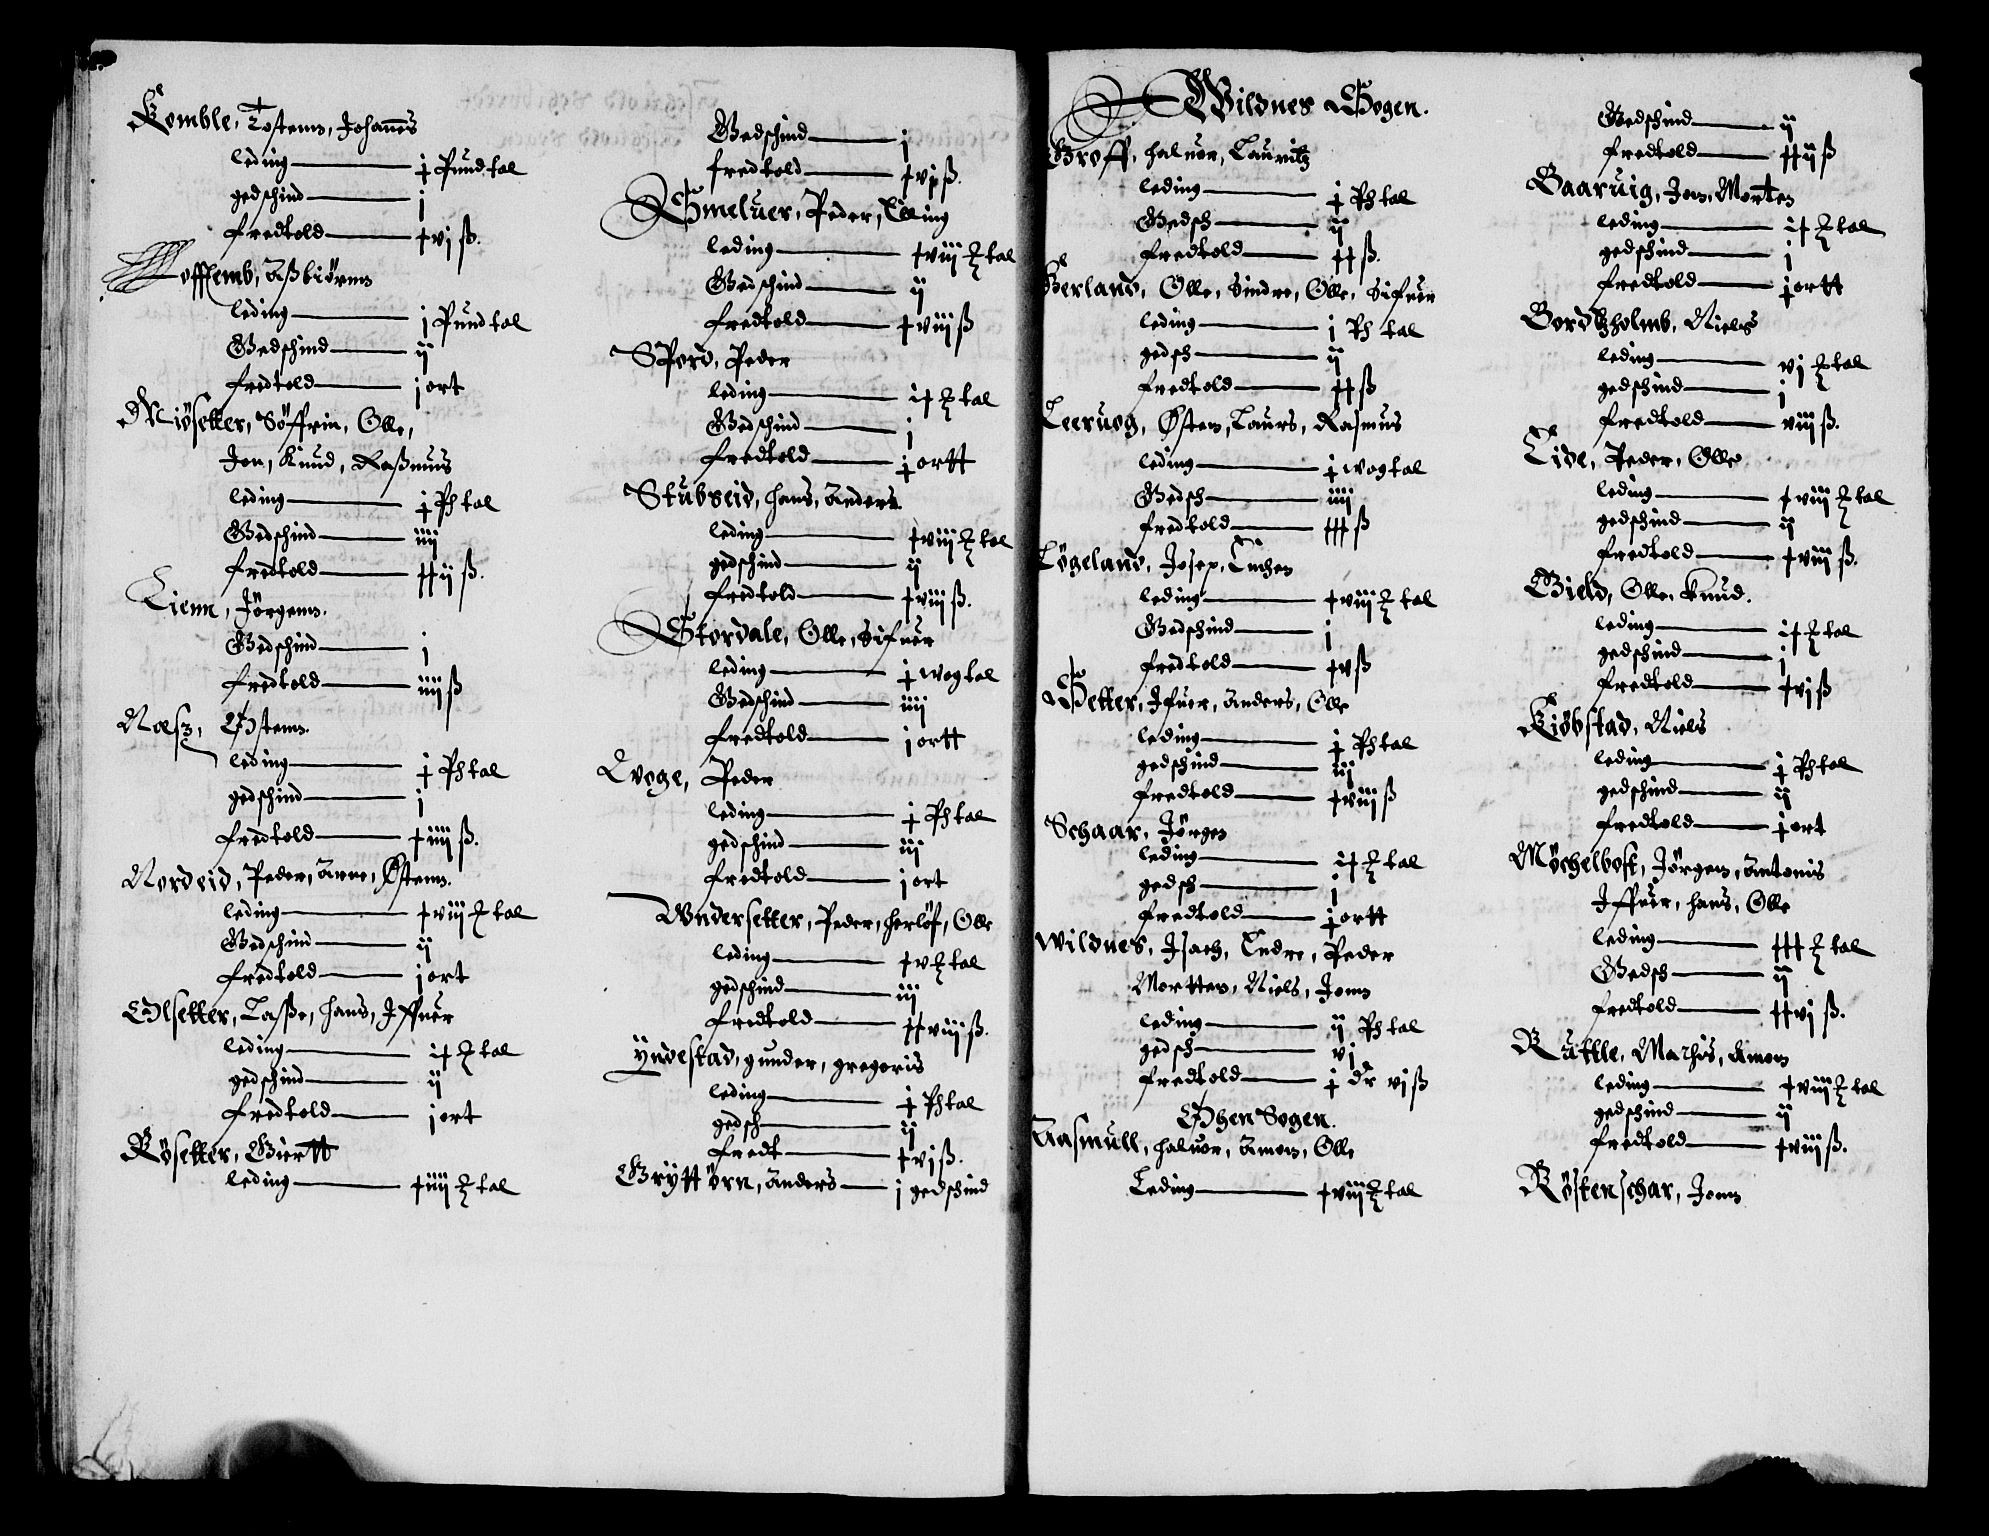 Komble, Tostenn, Johannes
leding j Pund tal
gedschind j
fredtold ɉvj ß.
Loffsemb, Aßbiörnn
leding j Pund tal
Gedschind ij
fredtold j ort
Miösetter, Söffrin, Olle,
Jon, Knud, Raßmus
leding j Ph tal
Gedschind iiij
fredtold ɉɉij ß.
Lienn, Jörgenn.
Gedschind j
fredtold iiij ß
Næsz, Østenn.
leding j Ph tal
gedschind j
fredtold ɉiiij ß.
Nordeid, Peder, Arne, Østenn.
leding ɉviij ℔ tal
Gedschind ij
fredtold j ort
Olsetter, Lasse, Hans, Iffuer
leding iɉ ℔ tal
gedschind ij
fredtold j ort
Rösetter, Giertt
leding ɉiiij ℔ tal
Gedschind j
fredtold ɉvj ß.
Smeluer, Peder, Elling
leding ɉviij ℔ tal
Gedschind ij
fredtold ɉviij ß
Spord, Peder
leding iɉ ℔ tal
Gedschind j
fredtold j ortt
Stubseid, Hans, Anders
leding ɉviij ℔ tal
gedschind ij
fredtold ɉviij ß.
Stordale, Olle, Sifuer
leding j wog tal
Gedschind iiij
fredtold j ortt
Qvoge, Peder
leding j Ph tal
gedschind iij
fredtold j ort
Vndersetter, Peder, Herlöf, Olle
leding ɉv ℔ tal
gedschind iij
fredtold ɉɉviij ß.
Yndestad, gunder, gregoris
leding j Ph tal
gedsch ij
fredt ɉvj ß.
Gryttörn, Anders j gedschind
Wildnes Sogen.
Groff, Haluor, Lauritz
leding j Ph tal
Gedsch ij
fredtold ɉɉ ß.
Herland, Olle, Sindre, Olle, Sifuer
leding j Ph tal
gedsch ij
fredtold ɉɉ ß
Leeruog, Østen, Laurs, Rasmus
leding j wog tal
Gedsch iiij
fredtold ɉɉɉ ß
Lögeland, Josep, Enchen
leding ɉviij ℔ tal
Gedschind j
fredtold ɉv ß
Setter, Ifuer, Anders, Olle
leding j Ph tal
gedschind iij
fredtold ɉviij ß
Schaar, Jörgen
leding iɉ ℔ tal
gedsch j
fredtold j ortt
Wildnes, Isach, Endre, Peder
Mortten, Niels, Jonn
leding ij Ph tal
gedsch vj
fredtold j dr vj ß
Øhen Sogen.
Aasmull, Haluor, Amon, Olle
Leding ɉviij ℔ tal
Gedschind ij
fredtold ɉɉij ß
Baaruig, Jon, Morten
leding iɉ ℔ tal
gedschind j
fredtold j ortt
Bordtzholmb, Niels
leding vj ℔ tal
gedschind j
fredtold viij ß.
Eide, Peder, Olle
leding ɉviij ℔ tal
gedschind ij
fredtold ɉviij ß.
Gield, Olle, Knud.
leding iɉ ℔ tal
gedschind j
fredtold ɉvj ß
Kiöbstad, Niels
leding j Ph tal
gedschind ij
fredtold j ort
Möchelbost, Jörgen, Antonis
Iffuer, Hans, Olle
leding ɉɉɉ ℔ tal
Gedsch ij
fredtold ɉɉvj ß.
Rutlle, Mathis, Amon
leding ɉviij ℔ tal
gedschind ij
fredtold ɉviij ß.
Röstenschar, Jonn